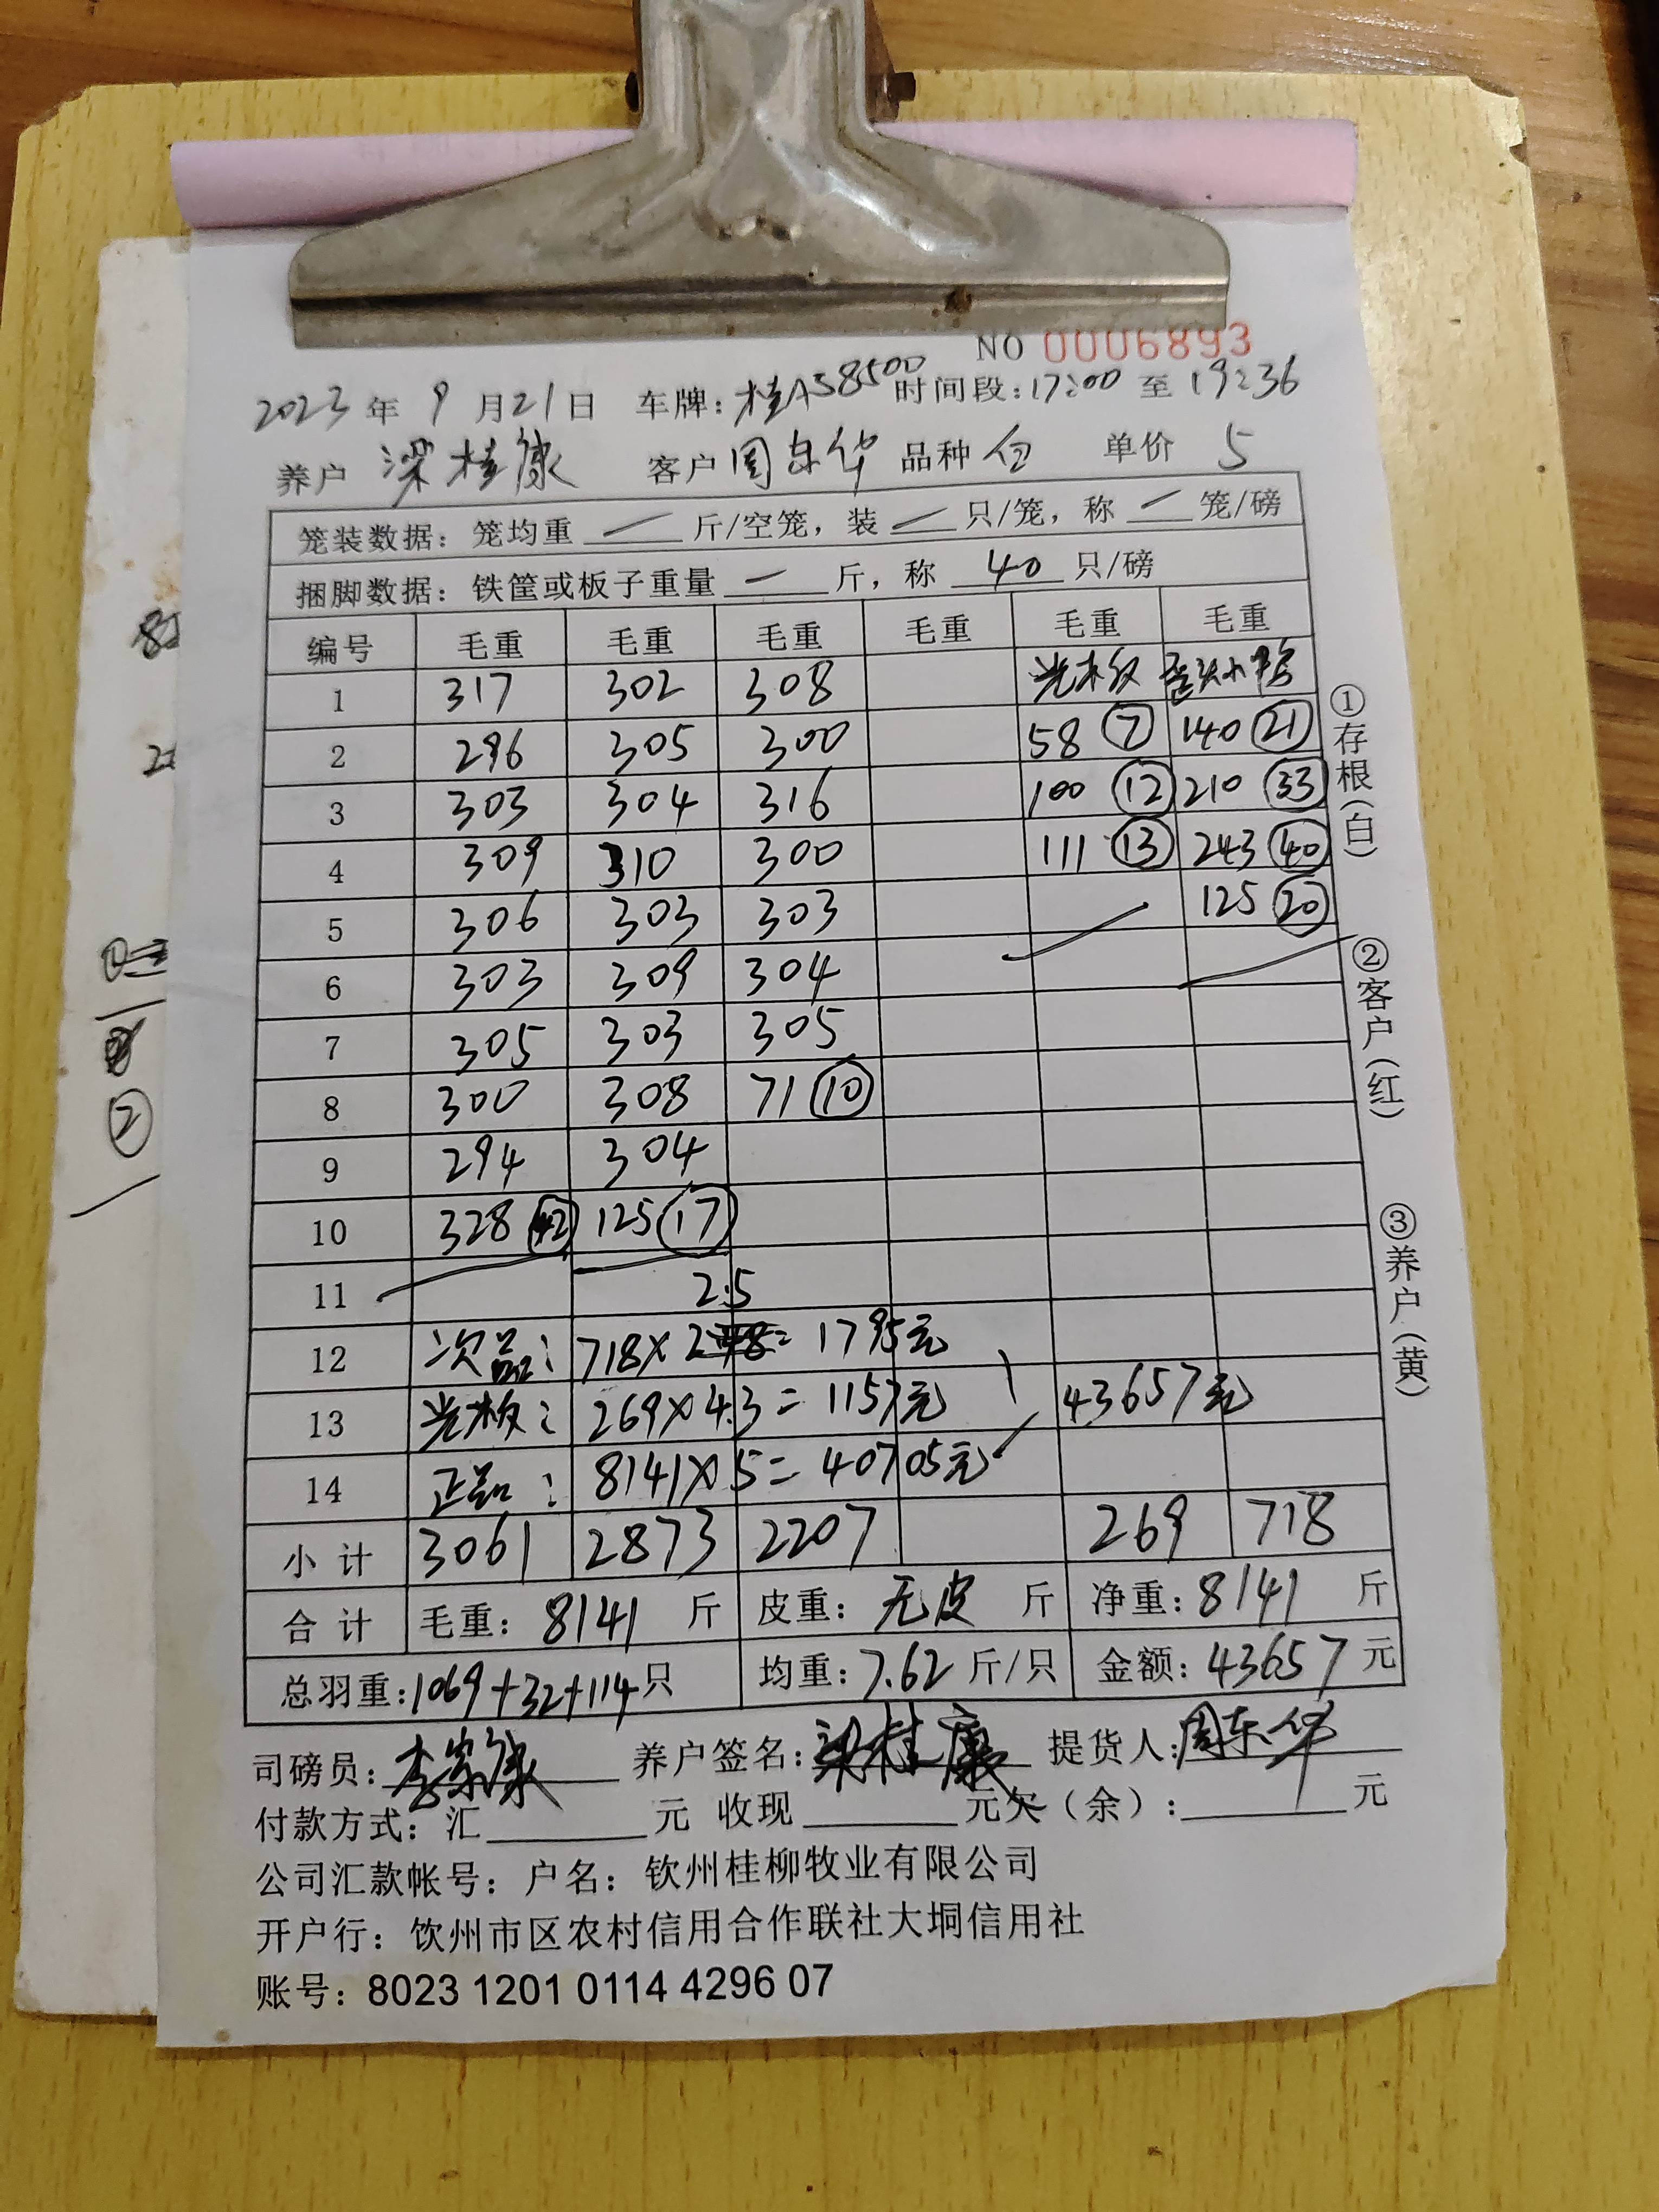 NO 0006893
2023年9月21日 车牌：桂A58500 时间段：17:00 至 19:36
养户 梁桂康 客户 周东华 品种 白 单价 5
笼装数据：笼均重 — 斤/空笼，装 — 只/笼，称 — 笼/磅
捆脚数据：铁筐或板子重量 — 斤，称 40 只/磅
编号 毛重 毛重 毛重 毛重 毛重 毛重
1 317 302 308 光板 歪头小鸭
2 296 305 300 58 ⑦ 140 ㉑
3 303 304 316 100 ⑫ 210 ㉝
4 309 310 300 111 ⑬ 243 ㊵
5 306 303 303 125 ⑳
6 303 309 304
7 305 303 305
8 300 308 71 ⑩
9 294 304
10 328 ㊷ 125 ⑰
11 2.5
12 次品：718×2 = 1795元
13 光板：269×4.3 = 1157元 43657元
14 正品：8141×5 = 40705元
小计 3061 2873 2207 269 718
合计 毛重：8141 斤 皮重：无皮 斤 净重：8141 斤
总羽重：1069+32+114只 均重：7.62 斤/只 金额：43657 元
司磅员：李家康 养户签名：梁桂康 提货人：周东华
付款方式：汇 元 收现 元欠（余）： 元
公司汇款帐号：户名：钦州桂柳牧业有限公司
开户行：钦州市区农村信用合作联社大垌信用社
账号：8023 1201 0114 4296 07
①存根（白）
②客户（红）
③养户（黄）
②